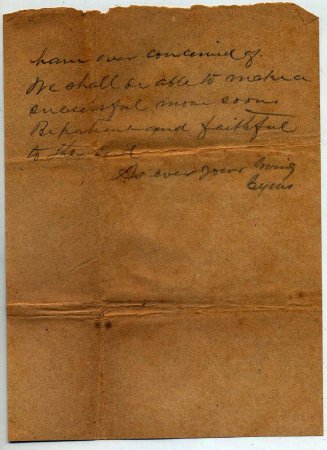 ever conceived of.
We shall be able to make a
successful move soon.
Be patient and faithful
to the end
As ever your loving
Cyrus